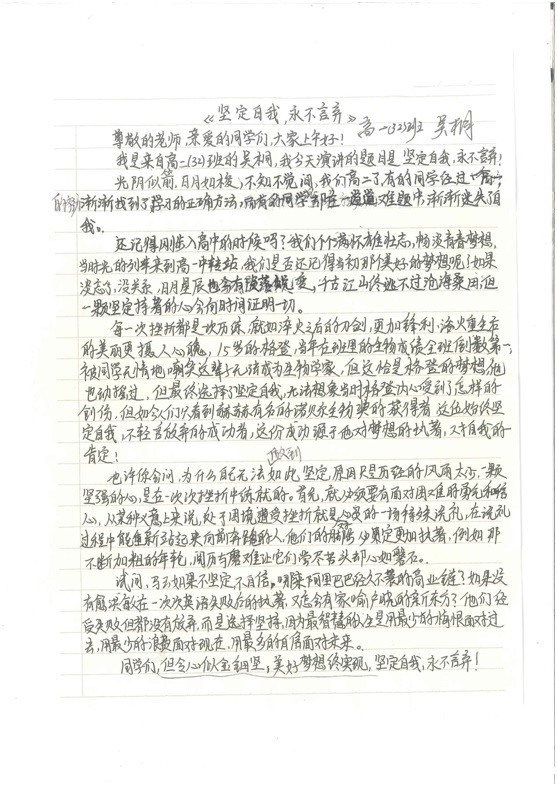 《坚定自我,永不言弃》 高一(32)班 吴桐
尊敬的老师,亲爱的同学们,大家上午好!
我是来自高二(32)班的吴桐,我今天演讲的题目是 坚定自我,永不言弃!
光阴似箭,日月如梭,不知不觉间,我们高二了,有的同学经过一高一
的努力渐渐找到了学习的正确方法,而有的同学却在一道道难题中,渐渐迷失了自
我。
还记得刚进入高中的时候吗?我们个个满怀雄心壮志,畅谈青春梦想,
当时光的列车来到高一中转站,我们是否还记得当初那个美好的梦想呢?如果
没忘了,没关系,日月星辰也会有陨落蜕变,千古江山终逃不过沧海桑田,但
一颗坚定持著的心会向时间证明一切。
每一次挫折都是一次历练,就如淬火之后的刀剑,更加锋利;浴火重生后
的美丽更摄人心魄,15岁的格登,当年在班里的生物成绩全班倒数第一,
被同学无情地嘲笑这辈子无法成为生物学家,但这恰是格登的梦想,他
也动摇过,但最终选择了坚定自我,无法想象当时格登内心受到了怎样的
创伤,但如今人们只看到赫赫有名的诺贝尔生物奖的获得者,这位始终坚
定自我,不轻言放弃的成功者,这份成功源于他对梦想的执著,对自我的
肯定!
也许你会问,为什么自己无法如此坚定,原因只是历经的风雨太少,一颗
坚强的心,是在一次次挫折中练就的。首先,就必须要有面对困难的勇气和信
心,从某种意义上来说,处于困境遭受挫折就是心灵的一场特殊洗礼,在洗礼
过程中能重新站起来向前奔跑的人,他们的脚步必定更加执著,例如那
不断加粗的年轮,阅历与磨难让它们尝尽苦头却心如磐石。
试问,马云如果不坚定不自信,哪来阿里巴巴经久不衰的商业链?如果没
有俞洪敏在一次次英语失败后的执著,又怎会有家喻户晓的新东方?他们经
受失败但都没有放弃,而是选择坚持,因为最智慧的人生是用最少的悔恨面对过
去,用最少的浪费面对现在,用最多的自信面对未来。
同学们,但令心似金钿坚,美好梦想终实现,坚定自我,永不言弃!